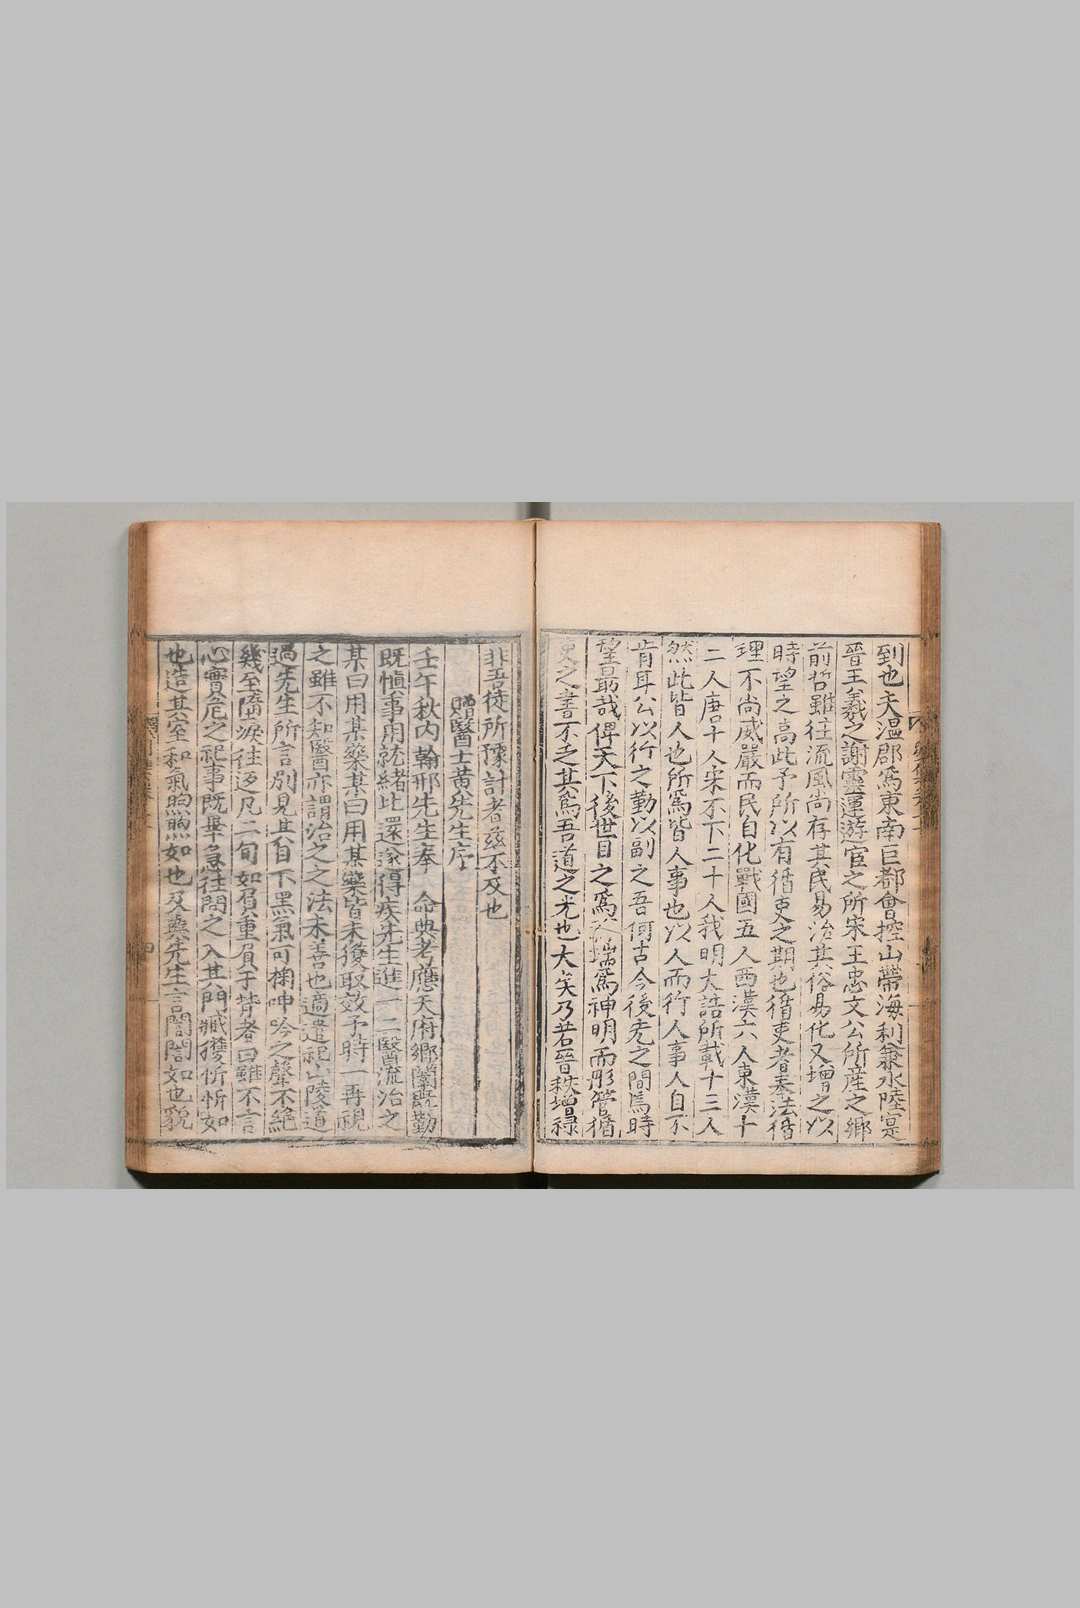 到也夫温郡為東南巨都會控山帶海利兼水陸寔
晉王羲之謝靈運遊宦之所宋王忠文公所産之鄉
前哲雖往流風尚存其民易治其俗易化又增之以
時望之高此予所以有循吏之期也循吏者奉法循
理不尚威嚴而民自化戰國五人西漢六人東漢十
二人唐十人宋不下二十人我明大誥所載十三人
然此皆人也所為皆人事也以人而行人事人自不
肯耳公以行之勤以副之吾何古今後先之間焉時
望最哉俾天下後世目之為祥瑞為神明而彤管循
吏之書不走其為吾道之光也大矣乃若晉秩增祿
非吾徒所豫計者茲不及也
贈醫士黄先生序
壬午秋内翰邢先生奉 命典考應天府鄉闈既勤
既慎事用就緒比還遂得疾先生進一二醫流治之
某曰用某藥某曰用某藥皆未獲取效予時一再視
之雖不知醫亦謂治之之法未善也適遣祀山陵道
過先生所言別見其自下黑氣可掬呻吟之聲不絕
幾至隕淚往返凡二旬如負重負于背者曰雖不言
心實危之祀事既畢急往問之入其門臧獲忻忻如
也造其室和氣煦煦如也及燕先生言誾誾如也貌